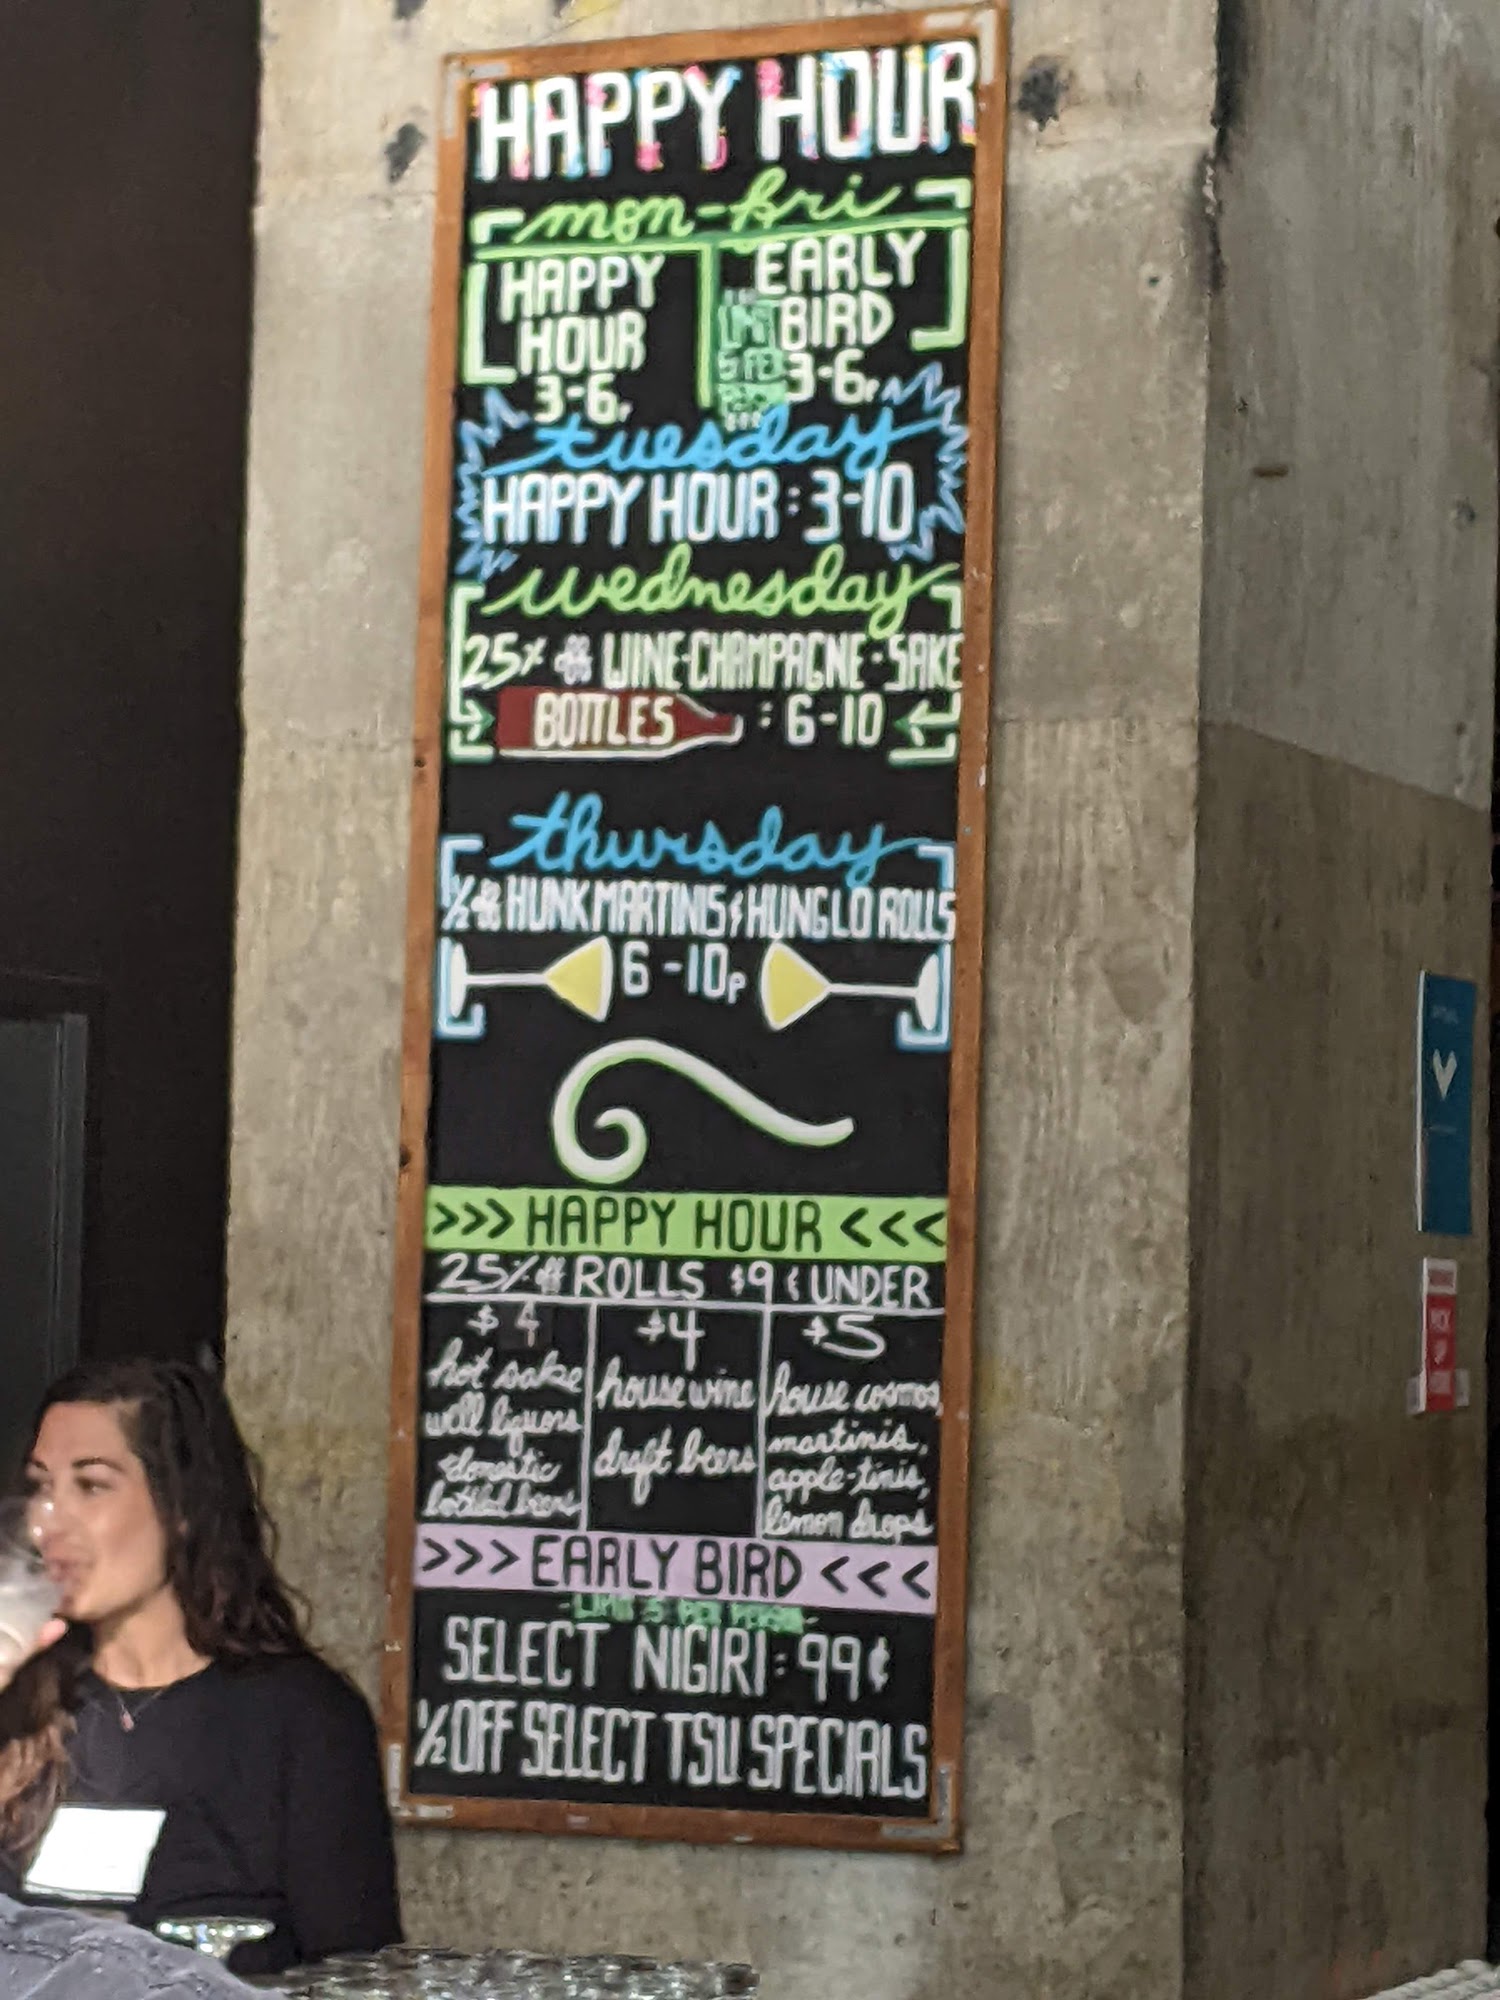 HAPPY HOUR
mon-fri
HAPPY
HOUR
3-6p
EARLY
BIRD
3-6p
LIMIT
5 PER
PERSON
tuesday
HAPPY HOUR: 3-10
wednesday
25% off WINE·CHAMPAGNE·SAKE
BOTTLES : 6-10
thursday
1/2 off HUNK MARTINIS & HUNG LO ROLLS
6-10p
>>> HAPPY HOUR <<<
25% off ROLLS $9 & UNDER
$4
hot sake
well liquors
domestic
bottled beers
$4
house wine
draft beers
$5
house cosmos,
martinis,
apple-tinis,
lemon drops
>>> EARLY BIRD <<<
-LIMIT 5 PER PERSON-
SELECT NIGIRI: 99¢
1/2 OFF SELECT TSU SPECIALS
PICK
UP